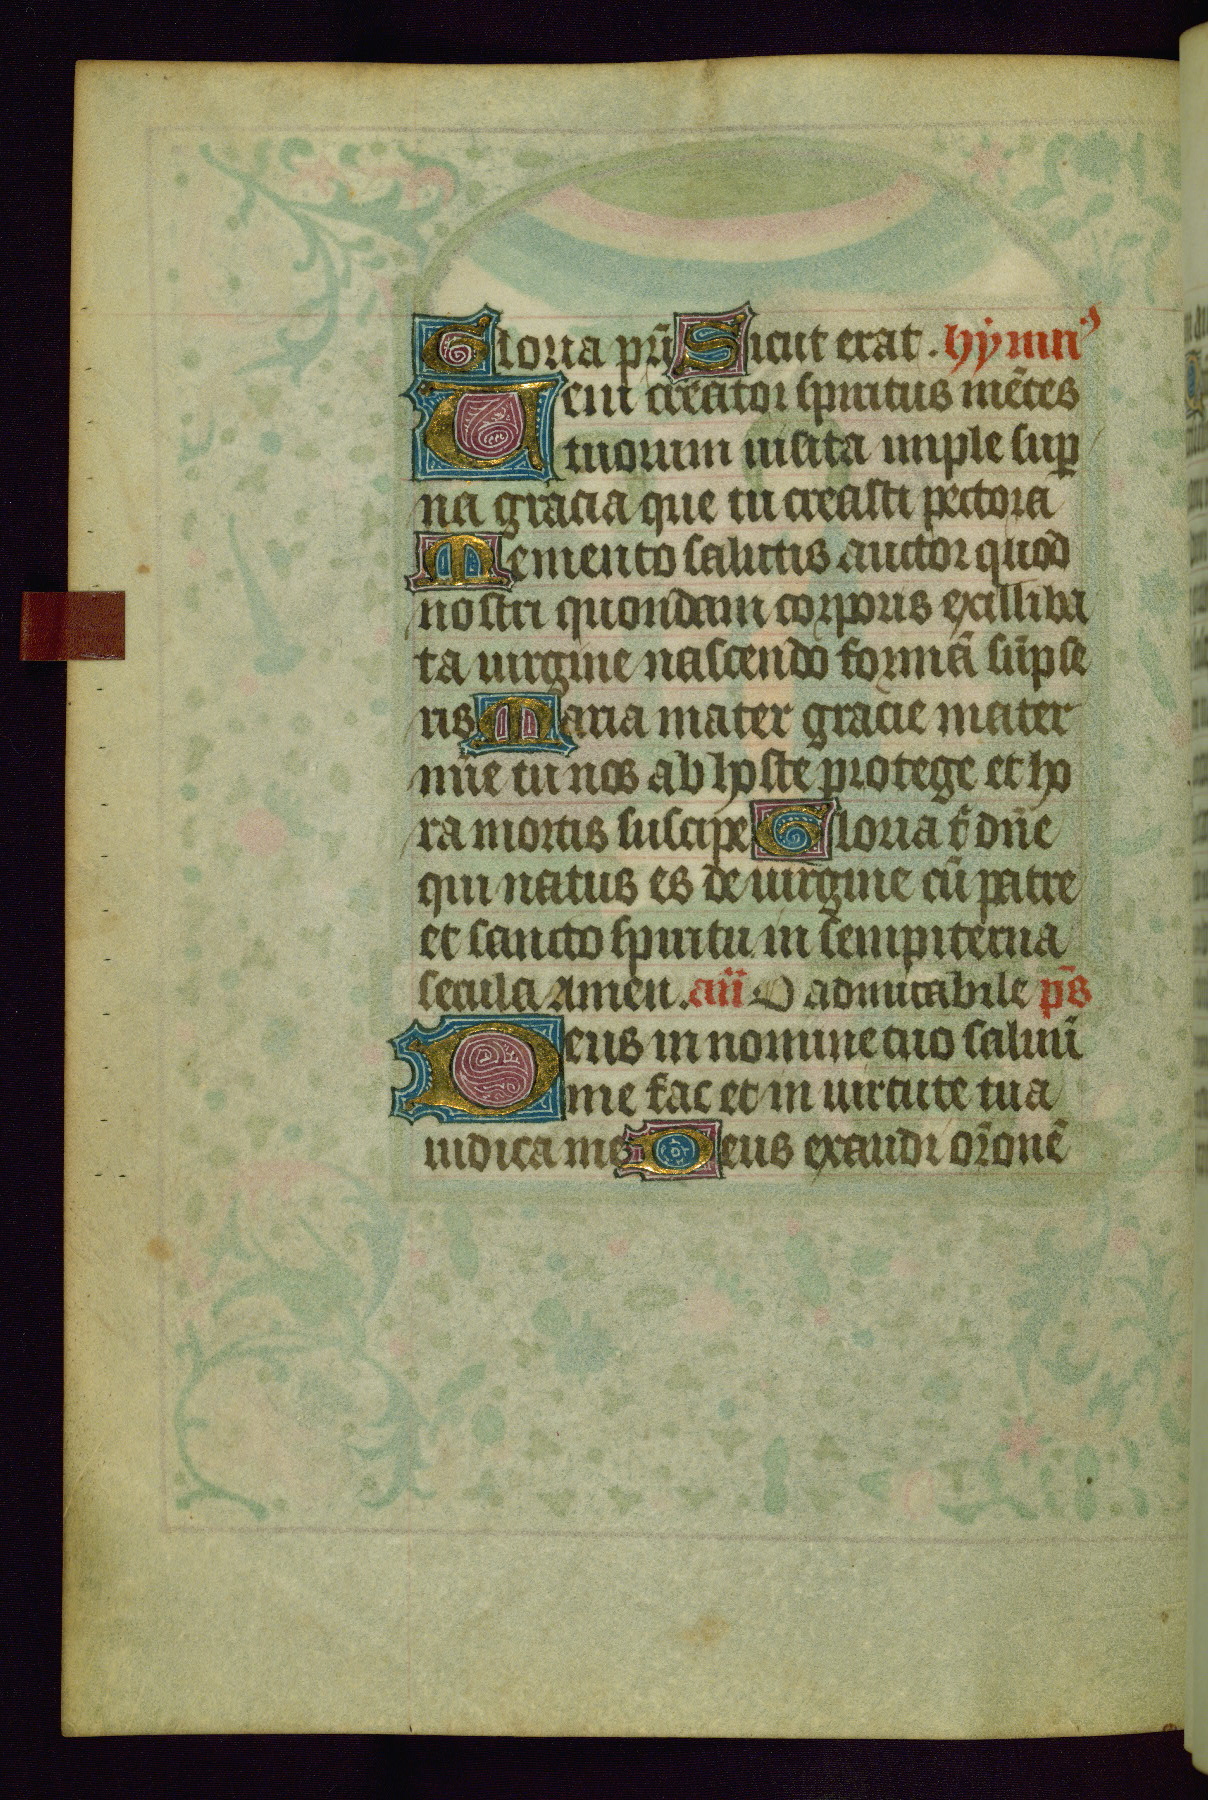 Gloria pr̄i Sicut erat. hȳmnꝰ
Ueni creator spiritus mētes
tuorum uisita imple suꝑ
na gracia que tu creasti pectora
Memento salutis auctor quod
nostri quondam corporis exilliba
ta uirgine nascendo formā sūpse
ris Maria mater gracie mater
mīe tu nos ab hoste protege et ho
ra mortis suscipe Gloria t̄ dn̄e
qui natus es de uirgine cū patre
et sancto spiritu in sempiterna
secula Amen. an̄ O admirabile ps̄
Deus in nomine tuo saluū
me fac et in uirtute tua
iudica me Deus exaudi or̄onē